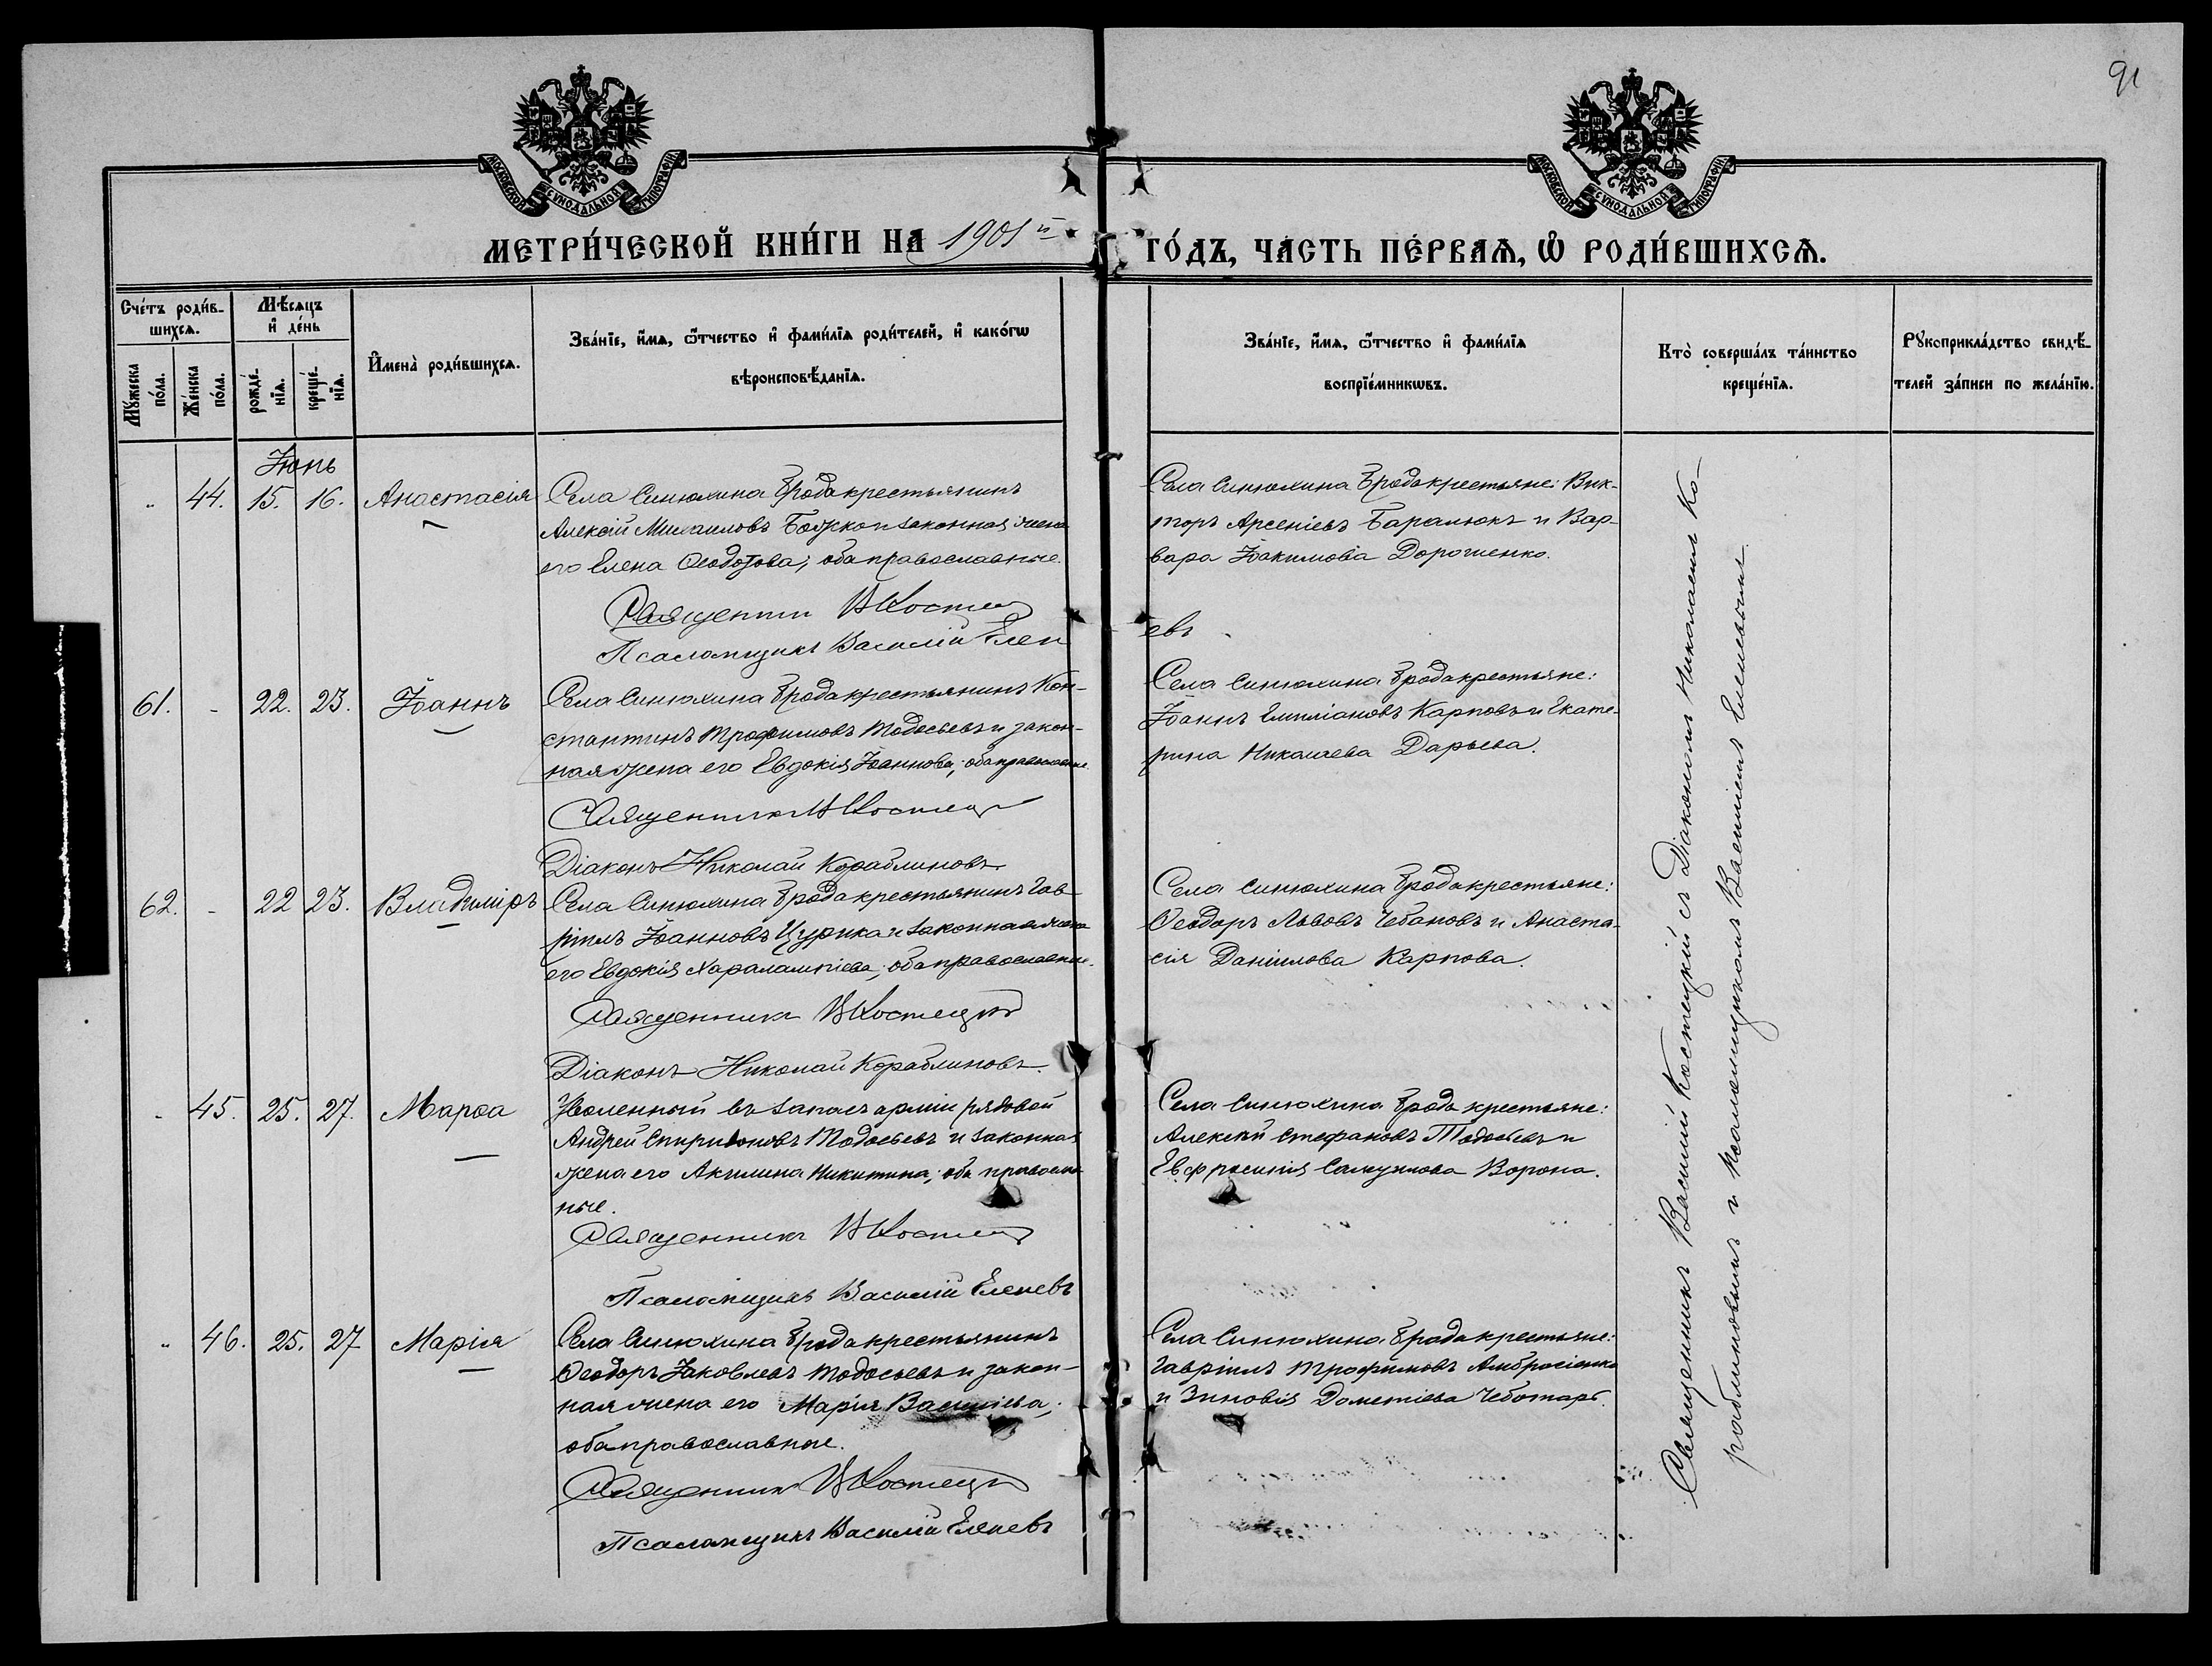 91
МОСКОВСКОЙ СѴНОДАЛЬНОЙ ТИПОГРАФІИ
МОСКОВСКОЙ СѴНОДАЛЬНОЙ ТИПОГРАФІИ
МЕТРИ́ЧЕСКОЙ КНИ́ГИ НА 1901й ГО́ДЪ, ЧА́СТЬ ПЕ́РВАѦ, Ѿ РОДИ́ВШИХСѦ.
Сче́тъ роди́в-
шихсѧ.
Мꙋ́жеска по́ла.
Же́нска по́ла.
Мѣ́сѧцъ
и҆ де́нь
рожде́-
нїѧ.
креще́-
нїѧ.
И҆мена̀ роди́вшихсѧ.
Зва́нїе, и҆́мѧ, ѻ҆́тчество и҆ фами́лїѧ роди́телей, и҆ како́гѡ
вѣроисповѣ́данїѧ.
Зва́нїе, и҆́мѧ, ѻ҆́тчество и҆ фами́лїѧ
воспрїе́мникѡвъ.
Кто̀ соверша́лъ та́инство
креще́нїѧ.
Рꙋкоприкла́дство свидѣ́-
телей за́писи по жела́нїю.
Іюнь
" 44. 15. 16. Анастасія
Села Синюхина Брода крестьянинъ
Алексій Михаиловъ Божко и законная жена
его Елена Ѳеодотова; оба православные.
Священникъ В Костец
Псаломщикъ Василій Елен
Села Синюхина Брода крестьяне: Вик-
торъ Арсеніевъ Баралюкъ и Вар-
вара Іоакимова Дорошенко.
евъ
61. - 22. 23. Іоаннъ
Села Синюхина Брода крестьянинъ Кон-
стантинъ Трофимовъ Тодосьевъ и закон-
ная жена его Евдокія Іоаннова; оба православные.
Священникъ В Костец
Діаконъ Николай Кораблиновъ
Села Синюхина Брода крестьяне:
Іоаннъ Емиліановъ Карповъ и Екате-
рина Николаева Дарьева.
62. - 22 23. Владиміръ
Села Синюхина Брода крестьянинъ Гав-
ріилъ Іоанновъ Цурика и законная жена
его Евдокія Харалампіева; оба православные.
Священникъ В Костецкій
Діаконъ Николай Кораблиновъ.
Села Синюхина Брода крестьяне:
Ѳеодоръ Львовъ Чебановъ и Анаста-
сія Даніилова Карпова.
- 45. 25. 27. Марѳа
Уволенный въ запасъ арміи рядовой
Андрей Спиридоновъ Тодосьевъ и законная
жена его Акилина Никитина; оба православ-
ные.
Священникъ В Костец
Псаломщикъ Василій Еленевъ
Села Синюхина Брода крестьяне:
Алексій Стефановъ Тодосьевъ и
Евфросинія Самуилова Ворона.
" 46. 25. 27 Марія
Села Синюхина Брода крестьянинъ
Ѳеодоръ Іаковлевъ Тодосьевъ и закон-
ная жена его Марія Василіева;
оба православные.
Священникъ В Костецкій
Псаломщикъ Василій Еленевъ
Села Синюхина Брода крестьяне:
Гавріилъ Трофимовъ Амбросіенко
и Зиновія Дометіева Чеботарь.
Священникъ Василій Костецкій съ Діакономъ Николаемъ Ко-
раблиновымъ и псаломщикомъ Василіемъ Еленевымъ.